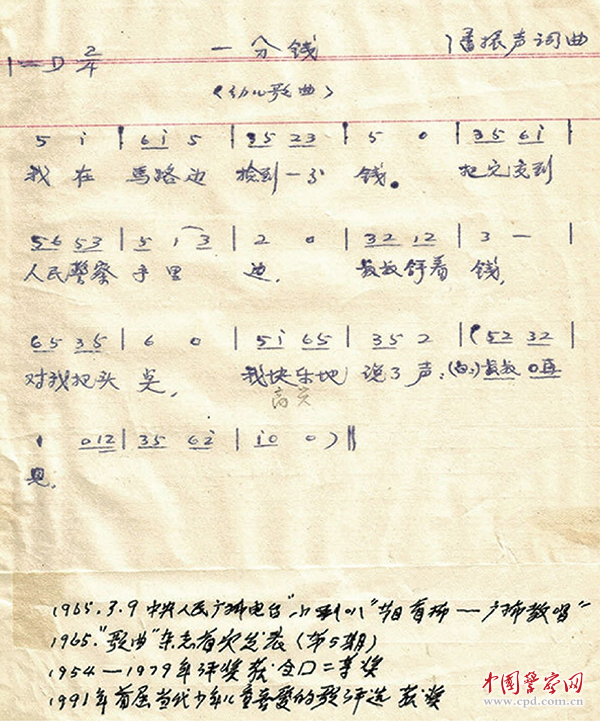 1=D 2/4 一分钱 潘振声词曲
(幼儿歌曲)
5 i | 6i 5 | 35 23 | 5 0 | 35 6i |
我在 马路边 捡到一分 钱。 把它交到
56 53 | 5 1 3 | 2 0 | 32 12 | 3 — |
人民警察 手里 边, 叔叔拿着 钱,
65 35 | 6 0 | 5i 65 | 35 2 | (52 32 |
对我把头 点, 我快乐地 说了声:(白:)叔叔 再
高兴
1 012 | 35 6i | i0 0) ‖
见。
1965.3.9 中央人民广播电台"小喇叭"节目首播—广播教唱"
1965."歌曲"杂志首次发表(第5期)
1954—1979年评奖获全国二等奖
1991年首届当代少年儿童喜爱的歌评选 获奖
中国警察网
www.cpd.com.cn